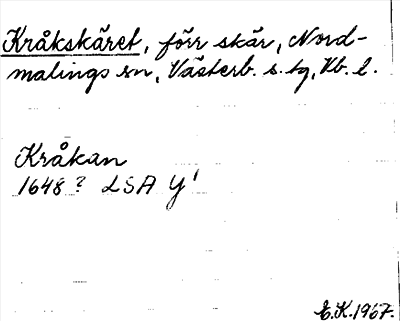 Kråkskäret, förr skär, Nord-
malings sn, Västerb. s. tg, Vb. l.
Kråkan
1648? LSA Y1
E.K. 1967.